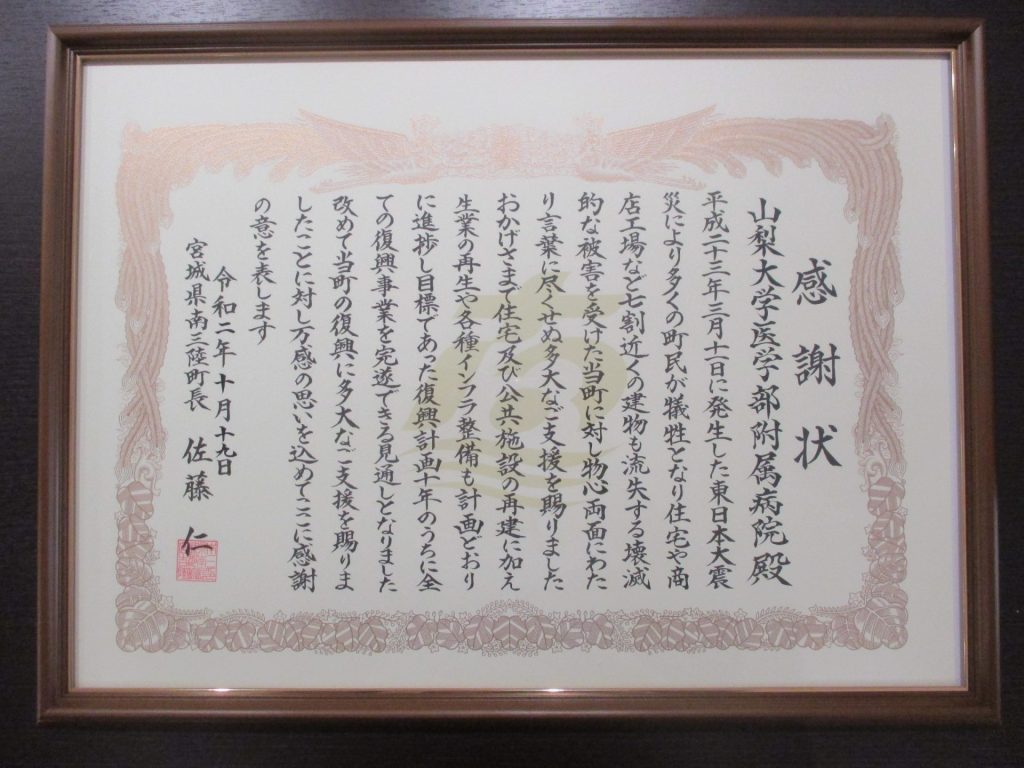 感謝状
山梨大学医学部附属病院殿
平成二十三年三月十一日に発生した東日本大震
災により多くの町民が犠牲となり住宅や商
店工場など七割近くの建物も流失する壊滅
的な被害を受けた当町に対し物心両面にわた
り言葉に尽くせぬ多大なご支援を賜りました
おかげさまで住宅及び公共施設の再建に加え
生業の再生や各種インフラ整備も計画どおり
に進捗し目標であった復興計画十年のうちに全
ての復興事業を完遂できる見通しとなりました
改めて当町の復興に多大なご支援を賜りま
したことに対し万感の思いを込めてここに感謝
の意を表します
令和二年十月十九日
宮城県南三陸町長 佐藤 仁